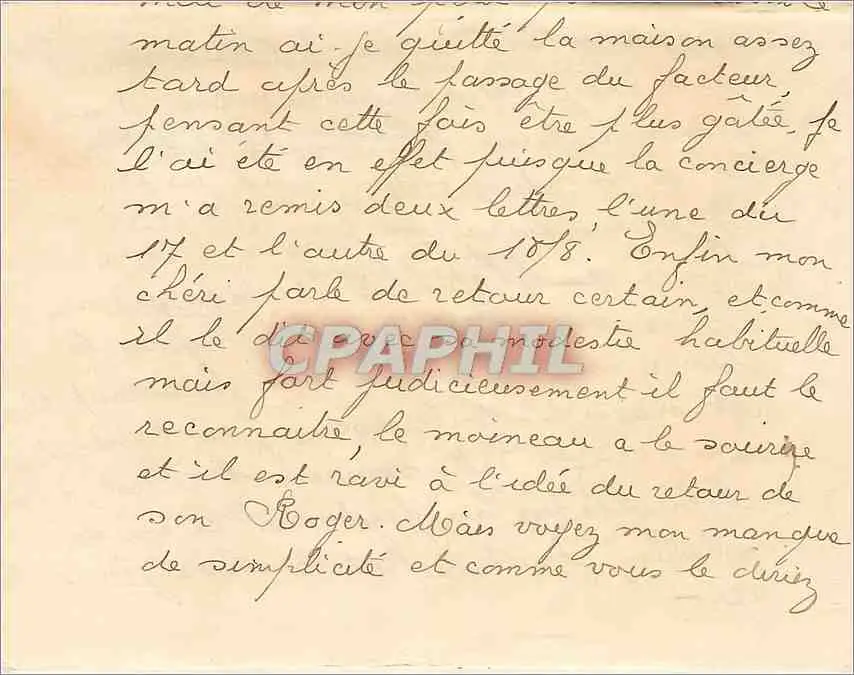 de mon
matin ai-je quitté la maison assez
tard après le passage du facteur,
pensant cette fois être plus gâtée. Je
l'ai été en effet puisque la concierge
m'a remis deux lettres, l'une du
17 et l'autre du 18/8. Enfin mon
chéri parle de retour certain, et comme
il le dit avec sa modestie habituelle
CPAPHIL
mais fort judicieusement il faut le
reconnaitre, le moineau a le sourire
et il est ravi à l'idée du retour de
son Roger. Mais voyez mon manque
de simplicité et comme vous le diriez